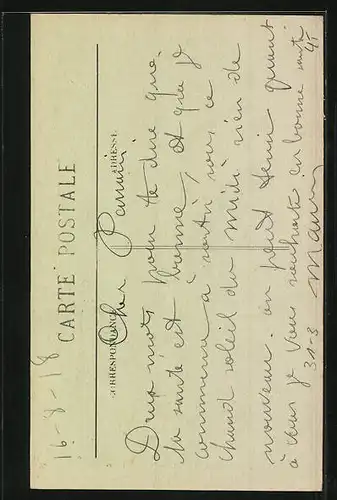 16-8-18
CARTE POSTALE
CORRESPONDANCE
ADRESSE
Cher Parrain
Deux mots pour te dire que
la santé est bonne, et que je
commence à sortir sous ce
chaud soleil du midi rien de
nouveau. on peut tenir quant
à vous je vous souhaite en bonne santé
31-3